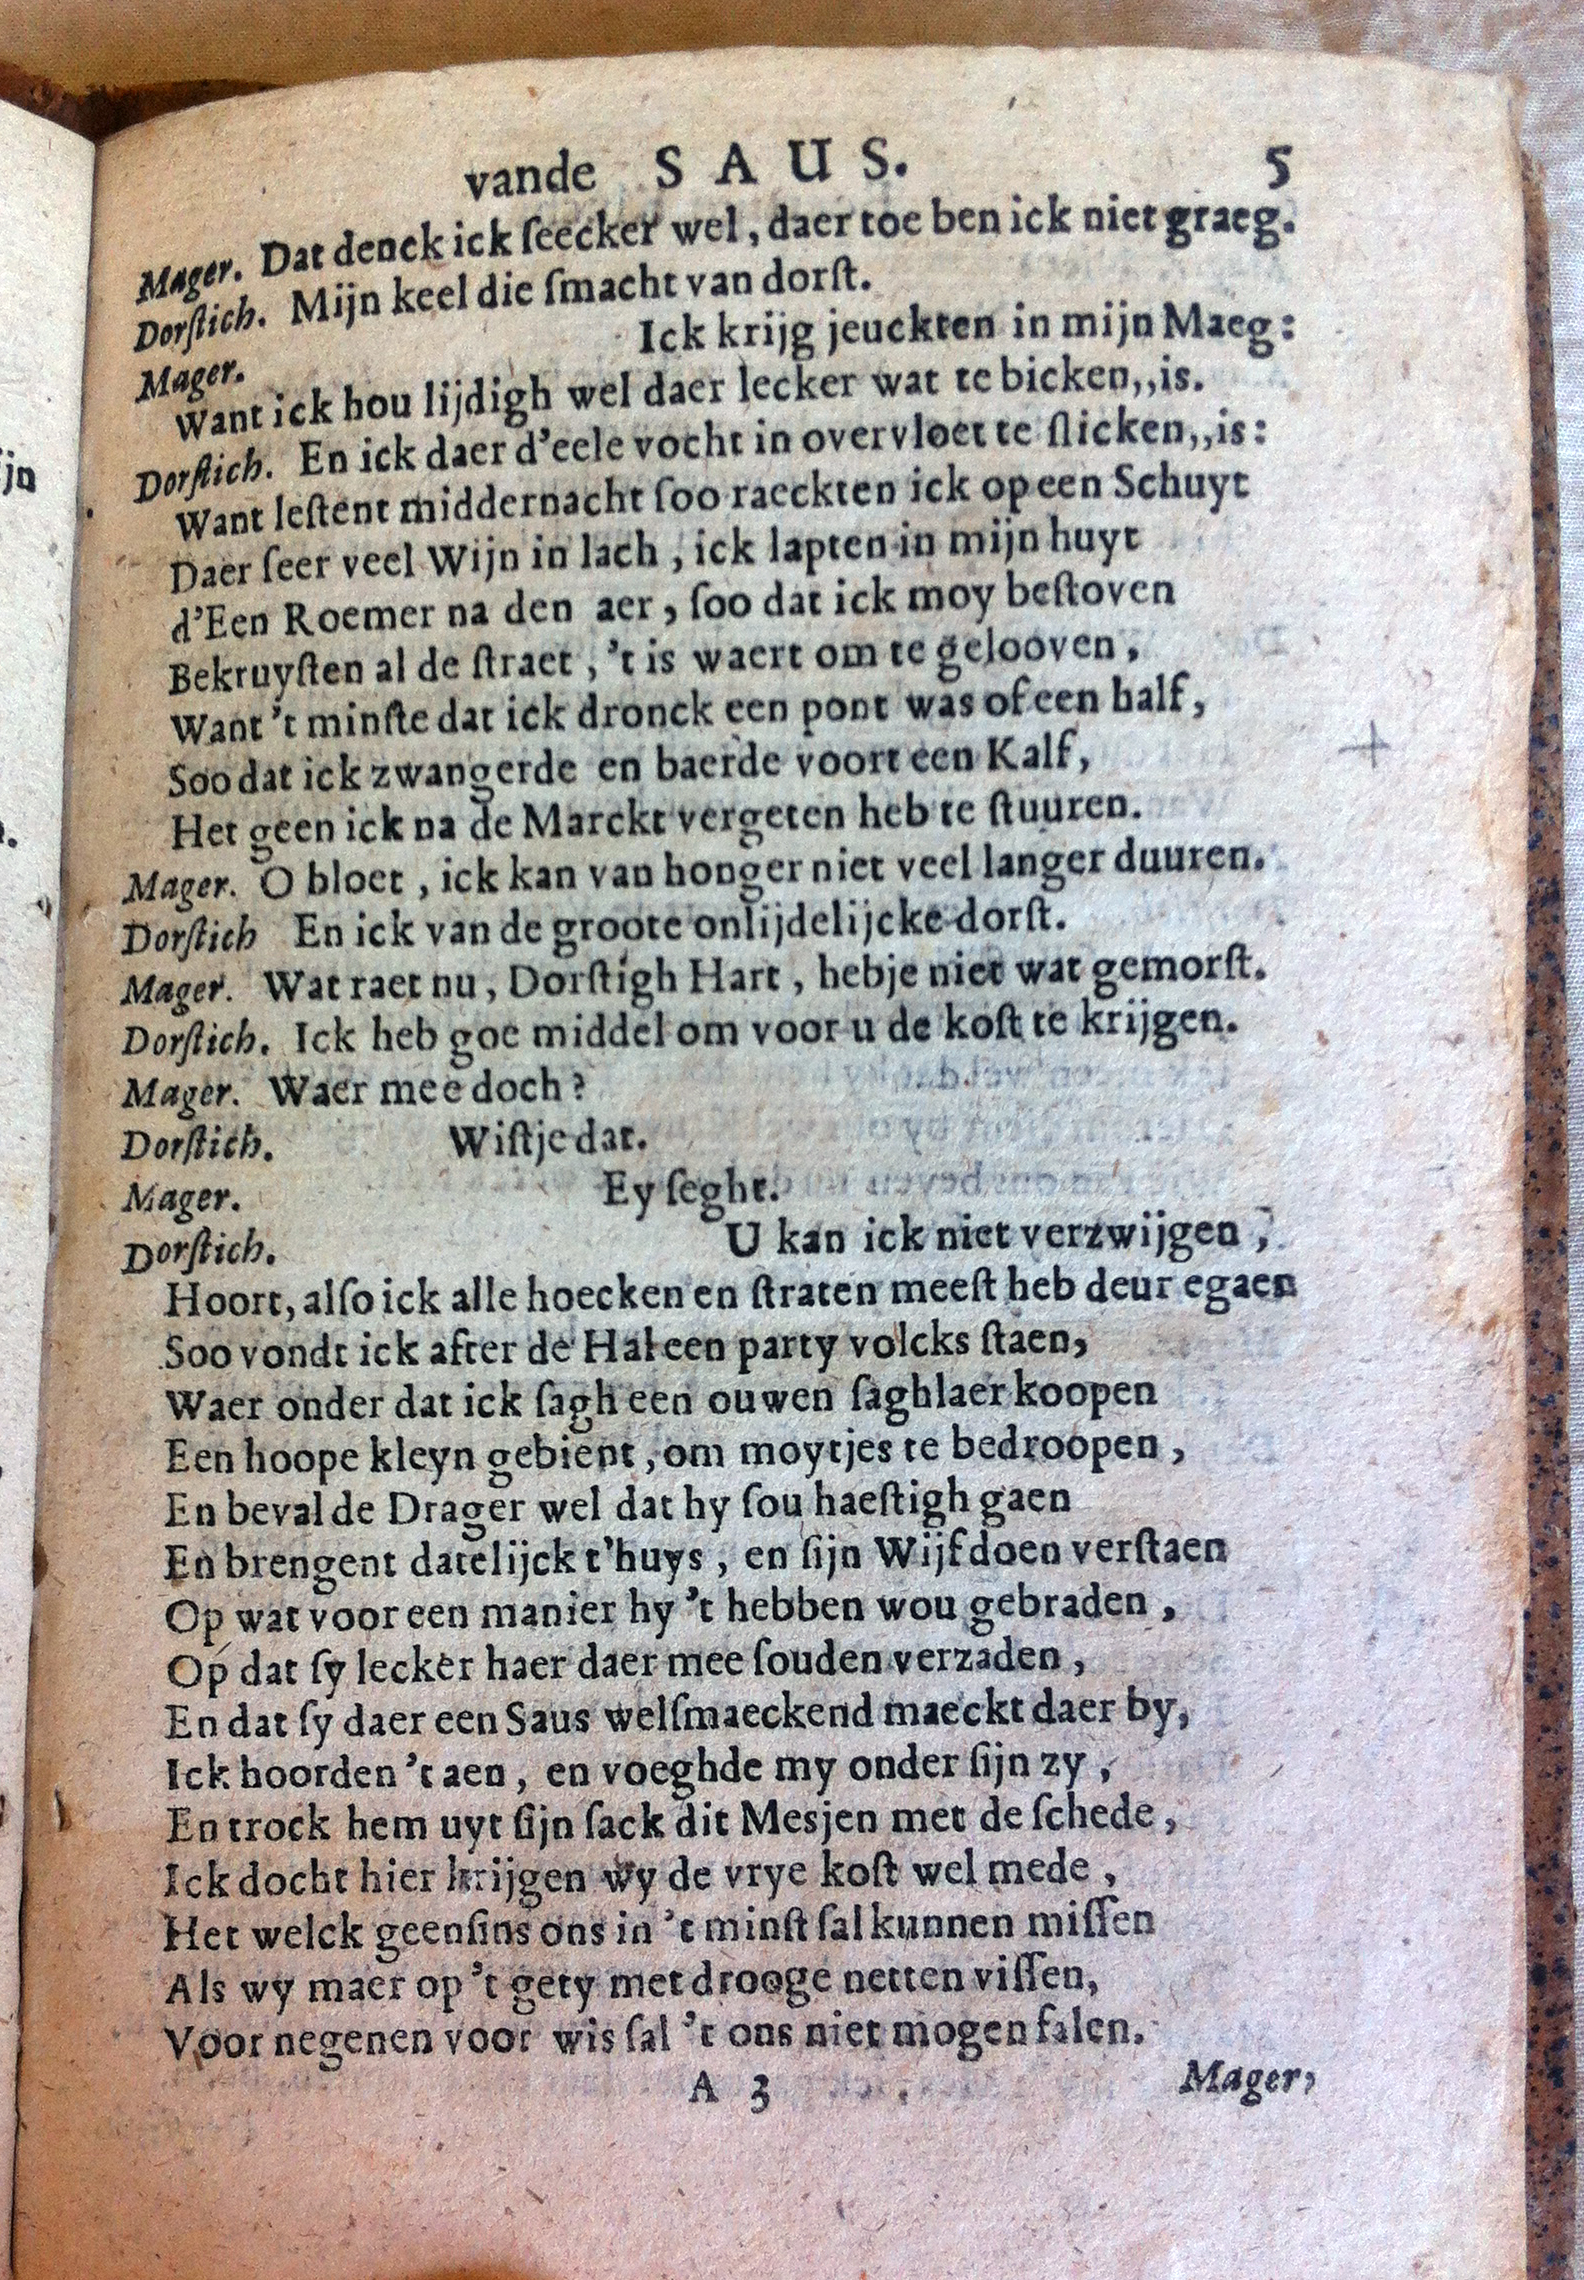 vande SAUS. 5
Mager. Dat denck ick ſeecker wel, daer toe ben ick niet graeg.
Dorſtich. Mijn keel die ſmacht van dorſt.
Mager. Ick krijg jeuckten in mijn Maeg:
Want ick hou lijdigh wel daer lecker wat te bicken,,is.
Dorſtich. En ick daer d'eele vocht in overvloet te ſlicken,,is:
Want leſtent middernacht ſoo raeckten ick op een Schuyt
Daer ſeer veel Wijn in lach, ick lapten in mijn huyt
d'Een Roemer na den aer, ſoo dat ick moy beſtoven
Bekruyſten al de ſtraet, 't is waert om te gelooven,
Want 't minſte dat ick dronck een pont was of een half,
Soo dat ick zwangerde en baerde voort een Kalf,
Het geen ick na de Marckt vergeten heb te ſtuuren.
Mager. O bloet, ick kan van honger niet veel langer duuren.
Dorſtich En ick van de groote onlijdelijcke dorſt.
Mager. Wat raet nu, Dorſtigh Hart, hebje niet wat gemorſt.
Dorſtich. Ick heb goe middel om voor u de koſt te krijgen.
Mager. Waer mee doch?
Dorſtich. Wiſtje dat.
Mager. Ey ſeght.
Dorſtich. U kan ick niet verzwijgen,
Hoort, alſo ick alle hoecken en ſtraten meeſt heb deur egaen
Soo vondt ick after de Hal een party volcks ſtaen,
Waer onder dat ick ſagh een ouwen ſaghlaer koopen
Een hoope kleyn gebient, om moytjes te bedroopen,
En beval de Drager wel dat hy ſou haeſtigh gaen
En brengent datelijck t'huys, en ſijn Wijf doen verſtaen
Op wat voor een manier hy 't hebben wou gebraden,
Op dat ſy lecker haer daer mee ſouden verzaden,
En dat ſy daer een Saus welſmaeckend maeckt daer by,
Ick hoorden 't aen, en voeghde my onder ſijn zy,
En trock hem uyt ſijn ſack dit Mesjen met de ſchede,
Ick docht hier krijgen wy de vrye koſt wel mede,
Het welck geenſins ons in 't minſt ſal kunnen miſſen
Als wy maer op 't gety met drooge netten viſſen,
Voor negenen voor wis ſal 't ons niet mogen falen.
A 3 Mager,